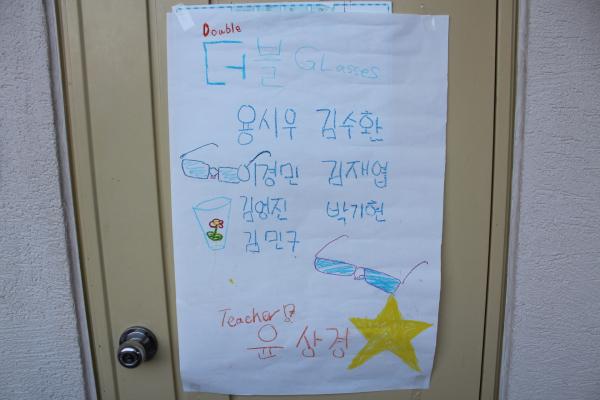 Double
더블 GLasses
용시우 김수환
이경민 김재엽
김영진 박기현
김민구
Teacher
윤상경